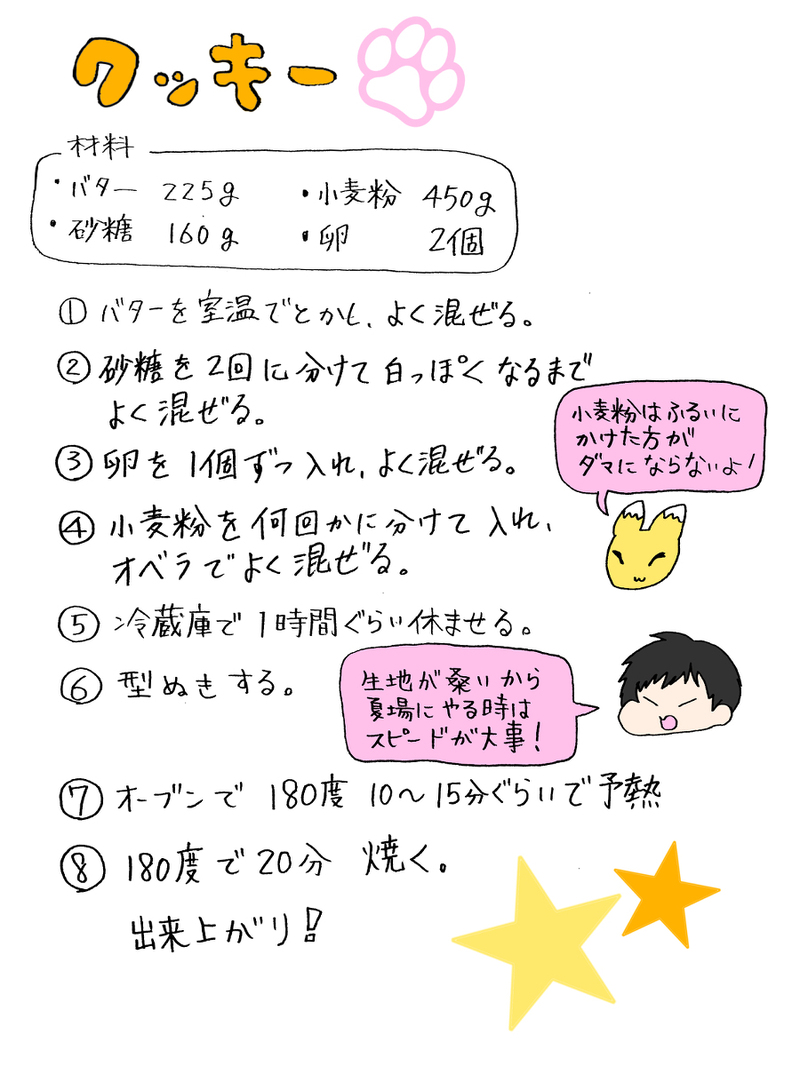 クッキー
材料
・バター 225g ・小麦粉 450g
・砂糖 160g ・卵 2個
① バターを室温でとかし、よく混ぜる。
② 砂糖を2回に分けて白っぽくなるまで
よく混ぜる。
③ 卵を1個ずつ入れ、よく混ぜる。
小麦粉はふるいに
かけた方が
ダマにならないよ!
④ 小麦粉を何回かに分けて入れ、
オベラでよく混ぜる。
⑤ 冷蔵庫で1時間ぐらい休ませる。
⑥ 型ぬきする。
生地が柔いから
夏場にやる時は
スピードが大事!
⑦ オーブンで 180度 10〜15分ぐらいで予熱
⑧ 180度で20分 焼く。
出来上がり!